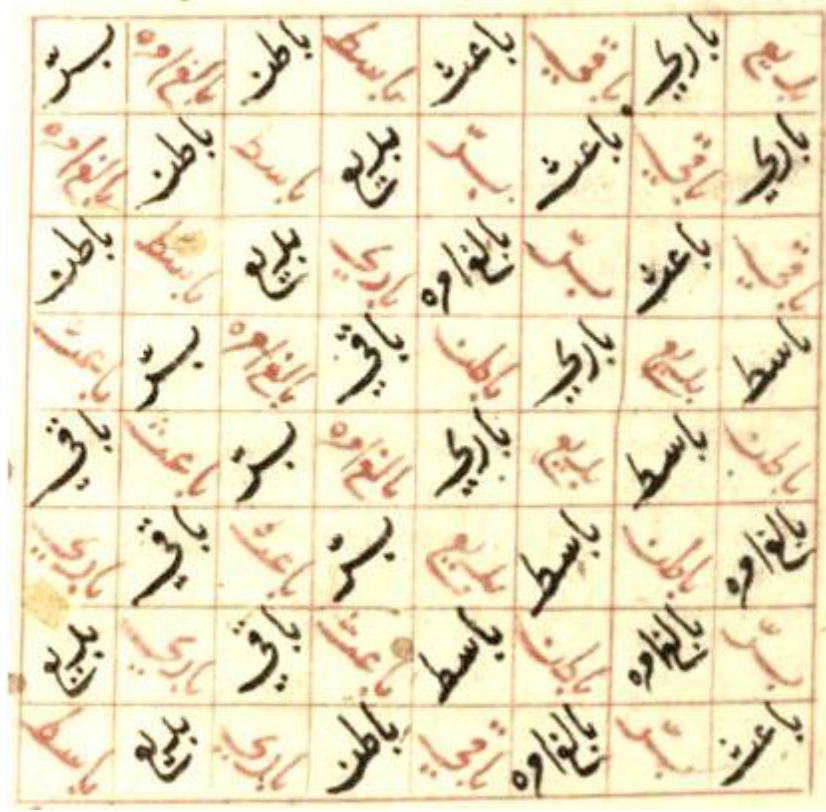 بديع باري باقي باعث باسط باطن بالغ امره برّ
باري باقي باعث برّ بديع باسط باطن بالغ امره
باقي باعث برّ بالغ امره باري بديع باسط باطن
باسط بديع باري باطن باقي بالغ امره برّ باعث
باطن باسط بديع باري بالغ امره برّ باعث باقي
بالغ امره باطن باسط بديع برّ باعث باقي باري
برّ بالغ امره باطن باسط باعث باقي باري بديع
باعث برّ بالغ امره باقي باطن باري بديع باسط